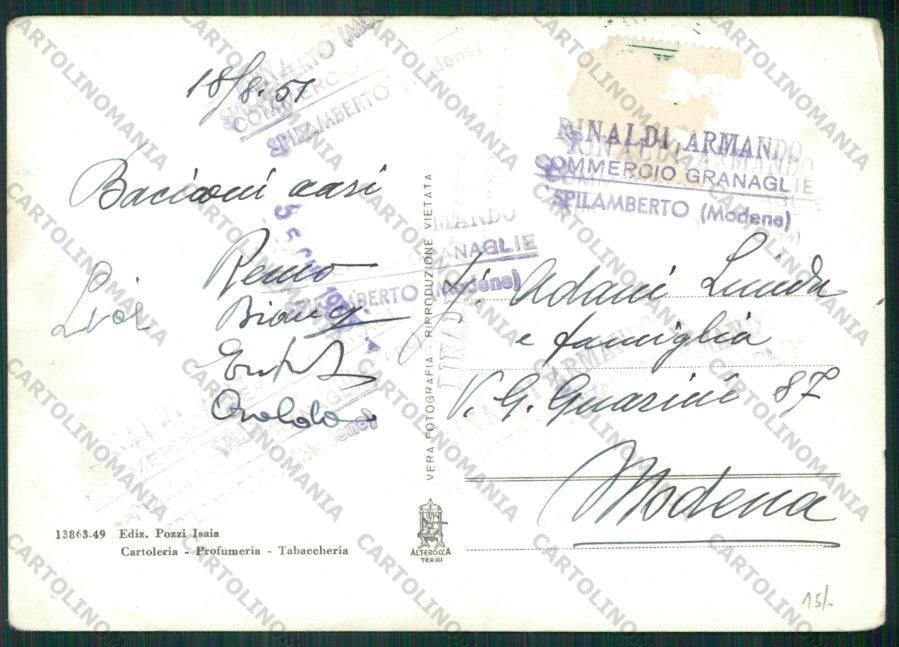 18/8.51
Bacioni cari
Remo
Bianca
Livia
Sig. Adani Luisa
e famiglia
V. G. Guarini 87
Modena
RINALDI ARMANDO
COMMERCIO GRANAGLIE
SPILAMBERTO (Modena)
COMMERCIO
SPILAMBERTO (Modena)
ARMANDO
GRANAGLIE
SPILAMBERTO (Modena)
VERA FOTOGRAFIA RIPRODUZIONE VIETATA
13863.49 Ediz. Pozzi Isaia
Cartoleria - Profumeria - Tabaccheria
ALTEROCCA
TERNI
15/-
CARTOLINOMANIA